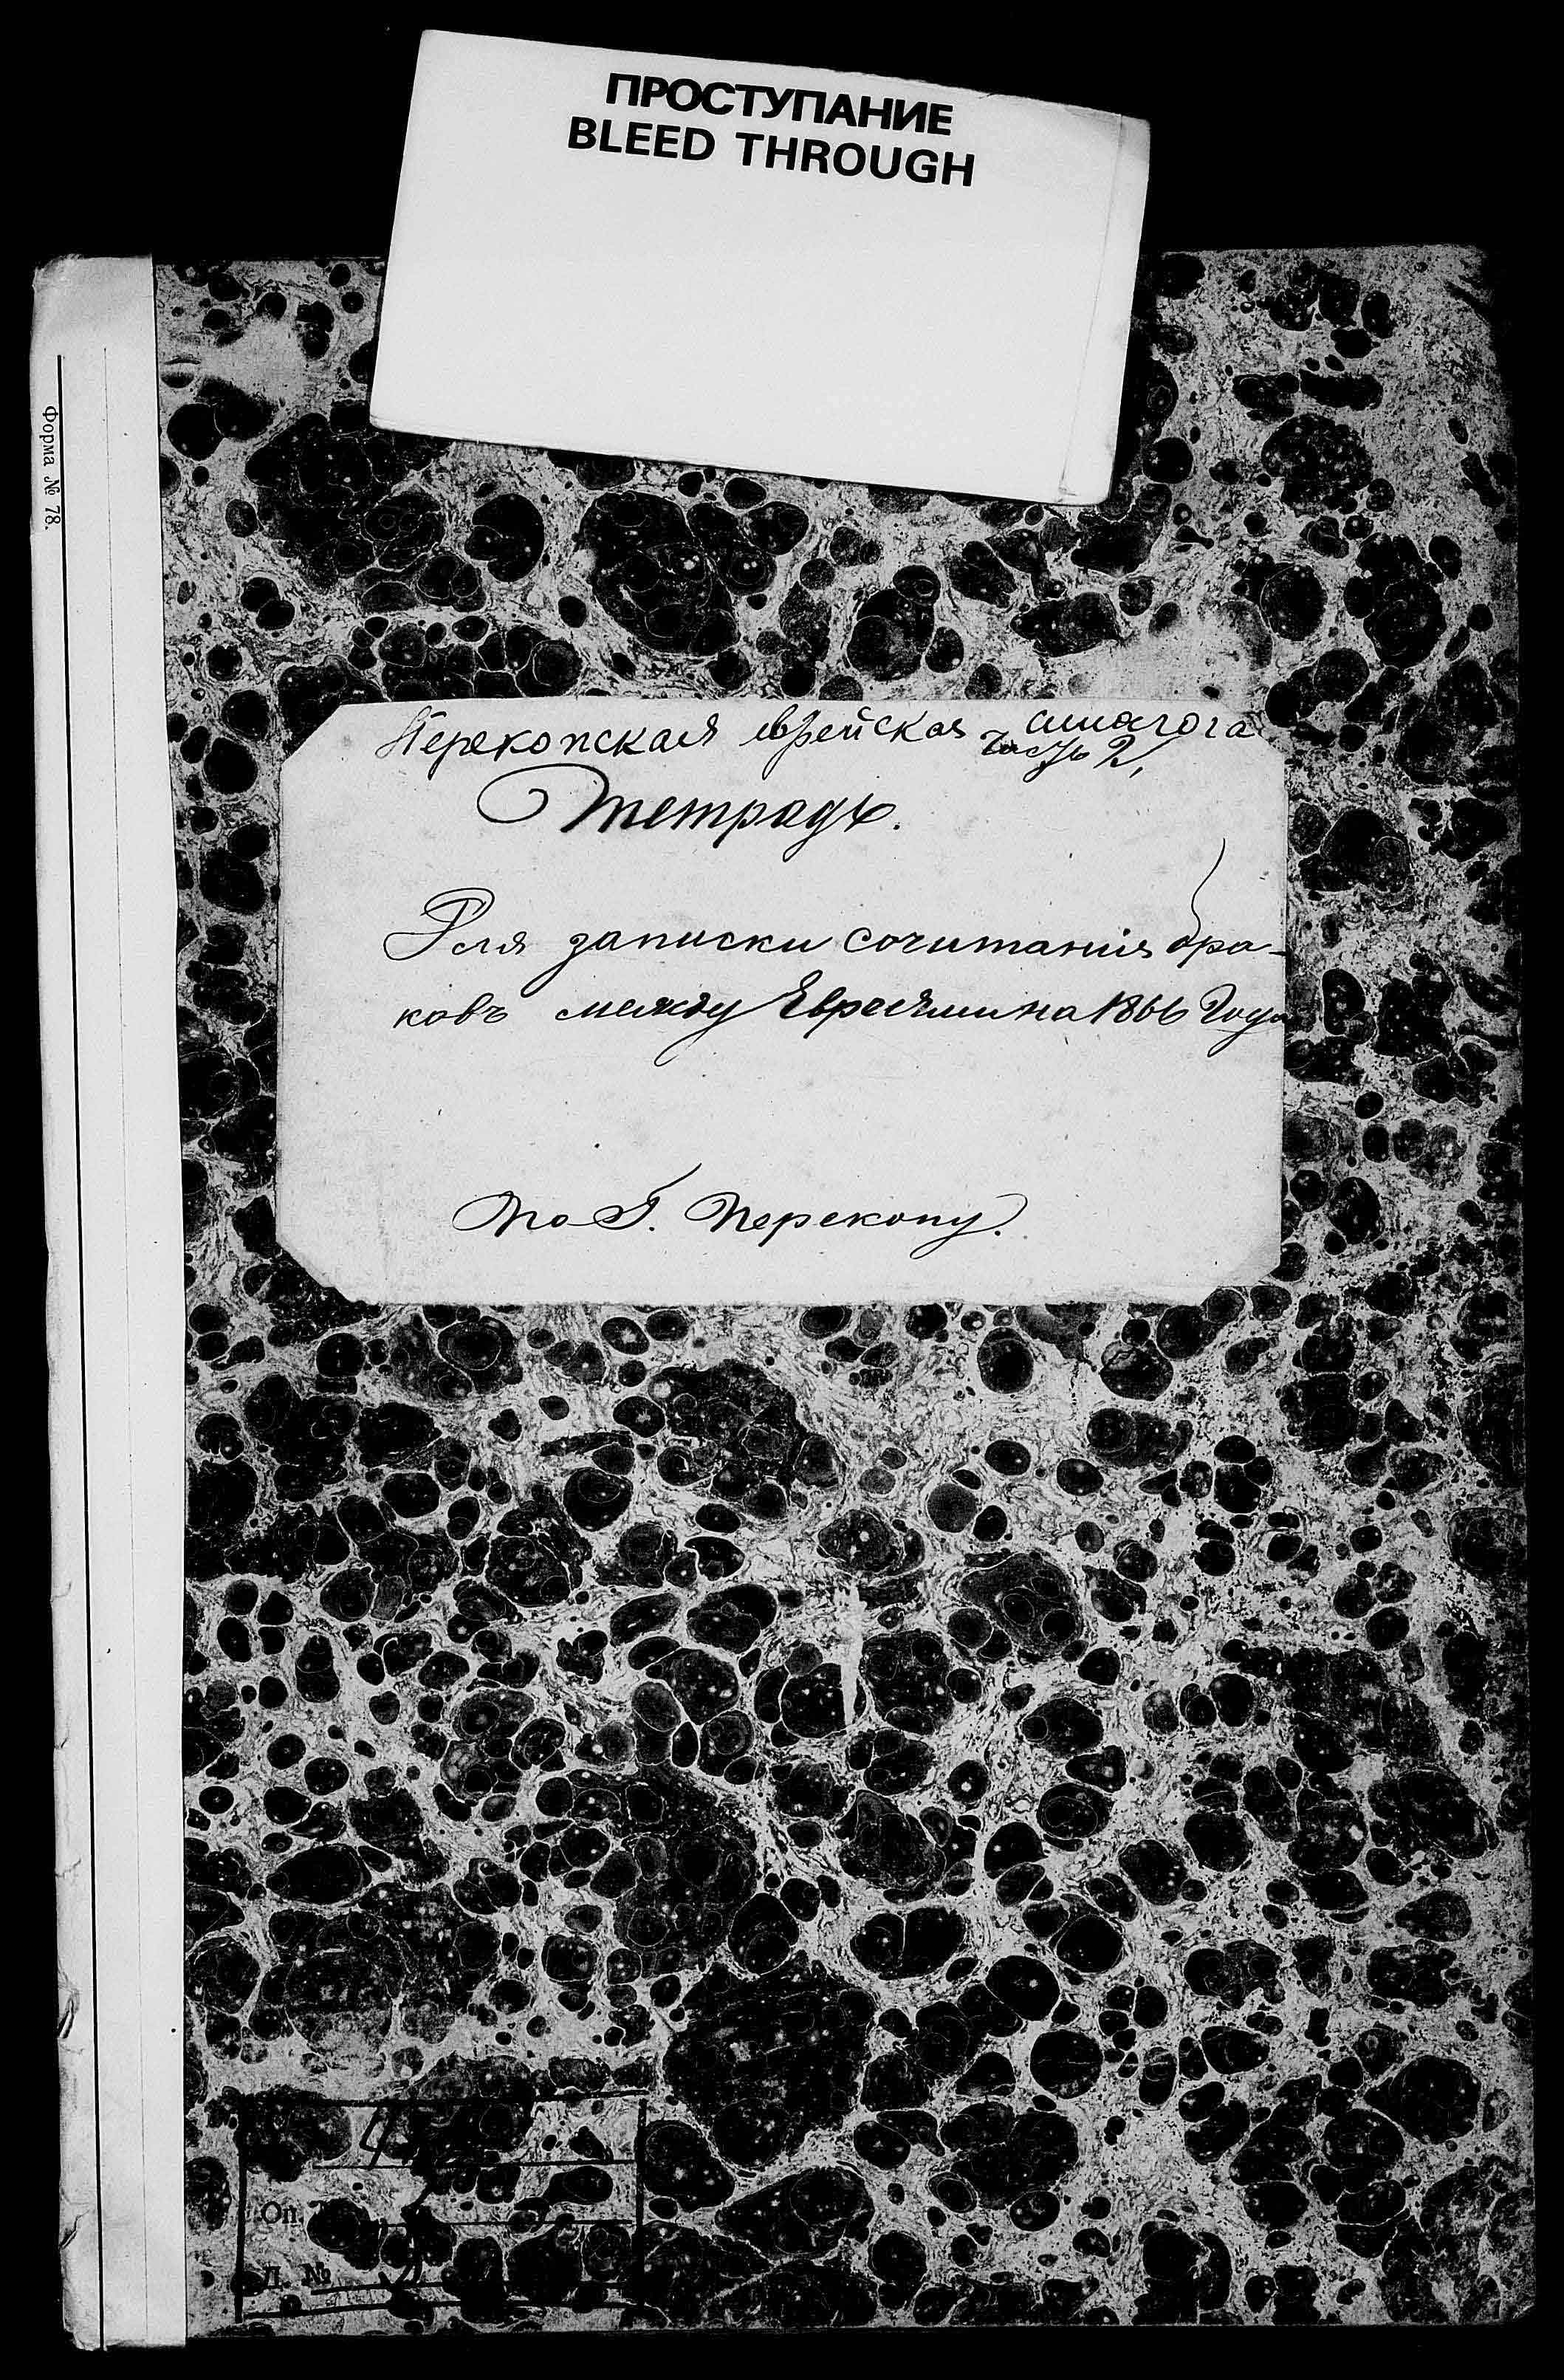 ПРОСТУПАНИЕ
BLEED THROUGH
Форма № 78.
Перекопская еврейская синагога
часть 2,
Тетрадь.
Для записки сочитанія бра-
ковъ между Евреями на 1866 Года
По Г. Перекопу.
Оп.
Д. №